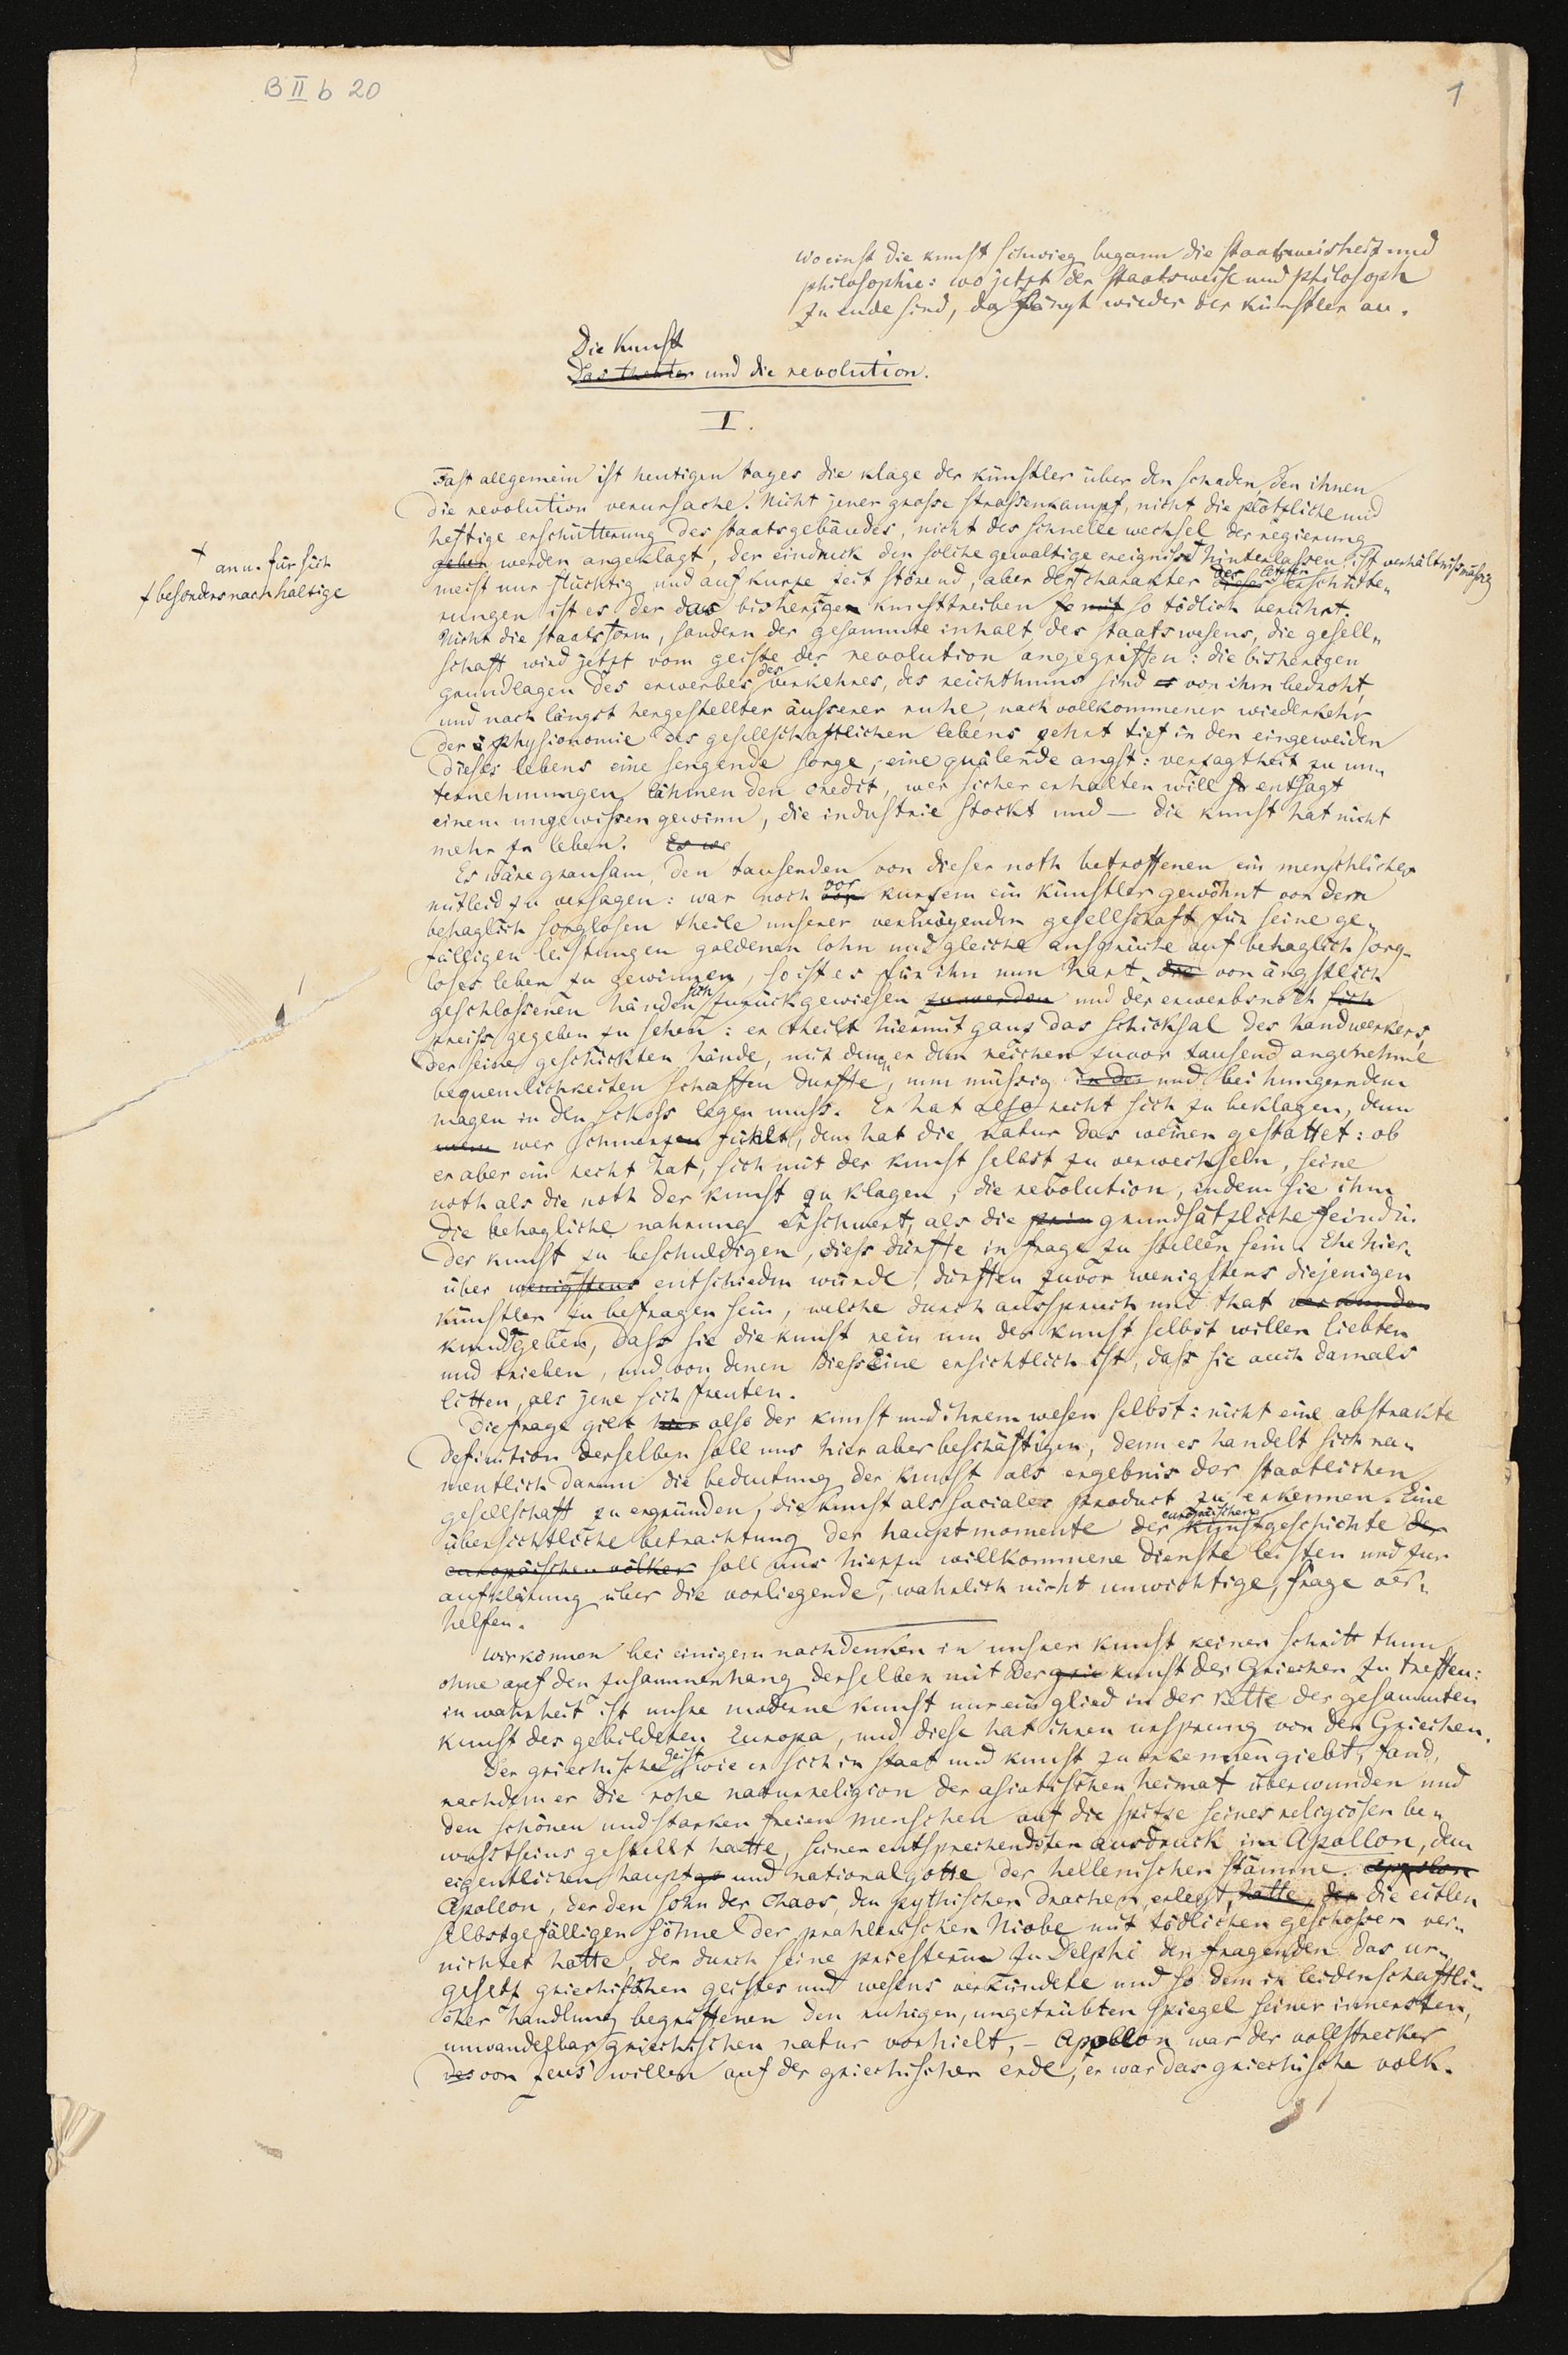 B II b 20
1
Wo einst die kunst schwieg, begann die staatsweisheit und
philosophie: wo jetzt der staatsweise und philosoph
zu ende sind, da fängt wieder der künstler an.
Die Kunst
Das theater und die revolution.
I.
Fast allgemein ist heutigen tages die klage der künstler über den schaden, den ihnen
die revolution verursache. Nicht jener grosse strassenkampf, nicht die plötzliche und
heftige erschütterung des staatsgebäudes, nicht der schnelle wechsel der regierung
werden angeklagt, der eindruck den solche gewaltige ereignisse † hinterlassen, ist verhältnissmässig
† an u. für sich
meist nur flüchtig und auf kurze zeit störend, aber der † charakter der letzten erschütte-
† besonders nachhaltige
rungen ist es der das bisherige kunsttreiben so tödlich berührt.
Nicht die staatsform, sondern der gesammte inhalt des staatswesens, die gesell-
schaft wird jetzt vom geiste der revolution angegriffen: die bisherigen
grundlagen des erwerbes, des verkehres, des reichthums sind von ihm bedroht,
und nach längst hergestellter äusserer ruhe, nach vollkommener wiederkehr
der physionomie des gesellschaftlichen lebens zehrt tief in den eingeweiden
dieses lebens eine sengende sorge, eine quälende angst: verzagtheit zu un-
ternehmungen lähmen den credit, wer sicher erhalten will entsagt
einem ungewissen gewinn, die industrie stockt und — die kunst hat nicht
mehr zu leben. Es wä
Es wäre grausam, den tausenden von dieser noth betroffenen ein menschliches
mitleid zu versagen: war noch vor kurzem ein künstler gewöhnt von dem
behaglich sorglosen theile unserer vermögenden gesellschaft für seine ge-
fälligen leistungen goldenen lohn und gleiche ansprüche auf behaglich sorg-
loses leben zu gewinnen, so ist es für ihn nun hart, von ängstlich
geschlossenen händen sich zurückgewiesen zu werden und der erwerbsnoth sich
preiss gegeben zu sehen: er theilt hiermit ganz das schicksal des handwerkers,
der seine geschickten hände, mit denen er dem reichen zuvor tausend angenehme
bequemlichkeiten schaffen durfte, nun müssig in der und bei hungerndem
magen in den schoss legen muss. Er hat also recht sich zu beklagen, denn
wer schmerzen fühlt, dem hat die natur das weinen gestattet: ob
er aber ein recht hat, sich mit der kunst selbst zu verwechseln, seine
noth als die noth der kunst zu klagen, die revolution, indem sie ihm
die behagliche nahrung erschwert, als die prin grundsätzliche feindin
der kunst zu beschuldigen, diess dürfte in frage zu stellen sein. Ehe hier-
über wenigstens entschieden würde, dürften zuvor wenigstens diejenigen
künstler zu befragen sein, welche durch ausspruch und that verkünden
kundgeben, dass sie die kunst rein um der kunst selbst willen liebten
und trieben, und von denen diess Eine ersichtlich ist, dass sie auch damals
litten, als jene sich freuten.
Die frage gilt hier also der kunst und ihrem wesen selbst: nicht eine abstrakte
definition derselben soll uns hier aber beschäftigen, denn es handelt sich na-
mentlich darum die bedeutung der kunst als ergebnis der staatlichen
gesellschaft zu ergründen, die kunst als sociales product zu erkennen. Eine
übersichtliche betrachtung der hauptmomente der europäischen kunstgeschichte der
europäischen völker soll uns hierzu willkommene dienste leisten und zur
aufklärung über die vorliegende, wahrlich nicht unwichtige, frage ver-
helfen.
Wir können bei einigem nachdenken in unsrer kunst keinen schritt thun,
ohne auf den zusammenhang derselben mit der grie kunst der Griechen zu treffen:
in wahrheit ist unsre moderne kunst nur ein glied in der kette der gesammten
kunst des gebildeten Europa, und diese hat ihren ursprung von den Griechen.
Der griechische geist, wie er sich in staat und kunst zu erkennen giebt, fand,
nachdem er die rohe naturreligion der asiatischen heimat überwunden und
den schönen und starken freien menschen auf die spitze seines religiösen be-
wusstseins gestellt hatte, seinen entsprechendsten ausdruck im Apollon, dem
eigentlichen haupt go und nationalgotte der hellenischen stämme. Apollon
Apollon, der den sohn des chaos, den pythischen drachen, erlegt, hatte, der die eitlen
selbstgefälligen söhne der prahlerischen Niobe mit tödlichen geschossen ver-
nichtet hatte, der durch seine priesterin zu Delphi den fragenden das ur-
gesetz griechischen geistes und wesens verkündete und so dem in leidenschaftli-
cher handlung begriffenen den ruhigen, ungetrübten spiegel seiner innersten,
unwandelbar griechischen natur vorhielt, – Apollon war der vollstrecker
des von Zeus willen auf der griechischen erde, er war das griechische volk.